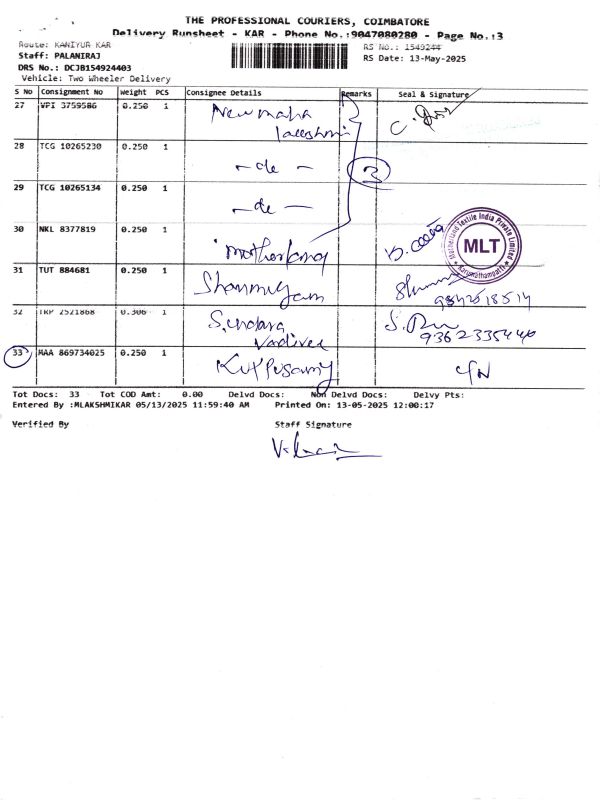 THE PROFESSIONAL COURIERS, COIMBATORE
Delivery Runsheet - KAR - Phone No.:9047080280 - Page No.:3
Route: KANIYUR KAR
RS No.: 1549244
Staff: PALANIRAJ
RS Date: 13-May-2025
DRS No.: DCJB154924403
Vehicle: Two Wheeler Delivery
S No Consignment No Weight PCS Consignee Details Remarks Seal & Signature
27 VPI 3759586 0.250 1 New maha
lakshmi
28 TCG 10265230 0.250 1 - do -
3
29 TCG 10265134 0.250 1 - do -
30 NKL 8377819 0.250 1 motherland
Motherland Textile India Private Limited
MLT
31 TUT 884681 0.250 1 Shanmugam
9842518514
32 TRP 2521868 0.300 1 Sundara
Vadivel
9362335440
33 MAA 869734025 0.250 1 Kuppusamy
Tot Docs: 33 Tot COD Amt: 0.00 Delvd Docs: Non Delvd Docs: Delvy Pts:
Entered By :MLAKSHMIKAR 05/13/2025 11:59:40 AM Printed On: 13-05-2025 12:00:17
Verified By Staff Signature